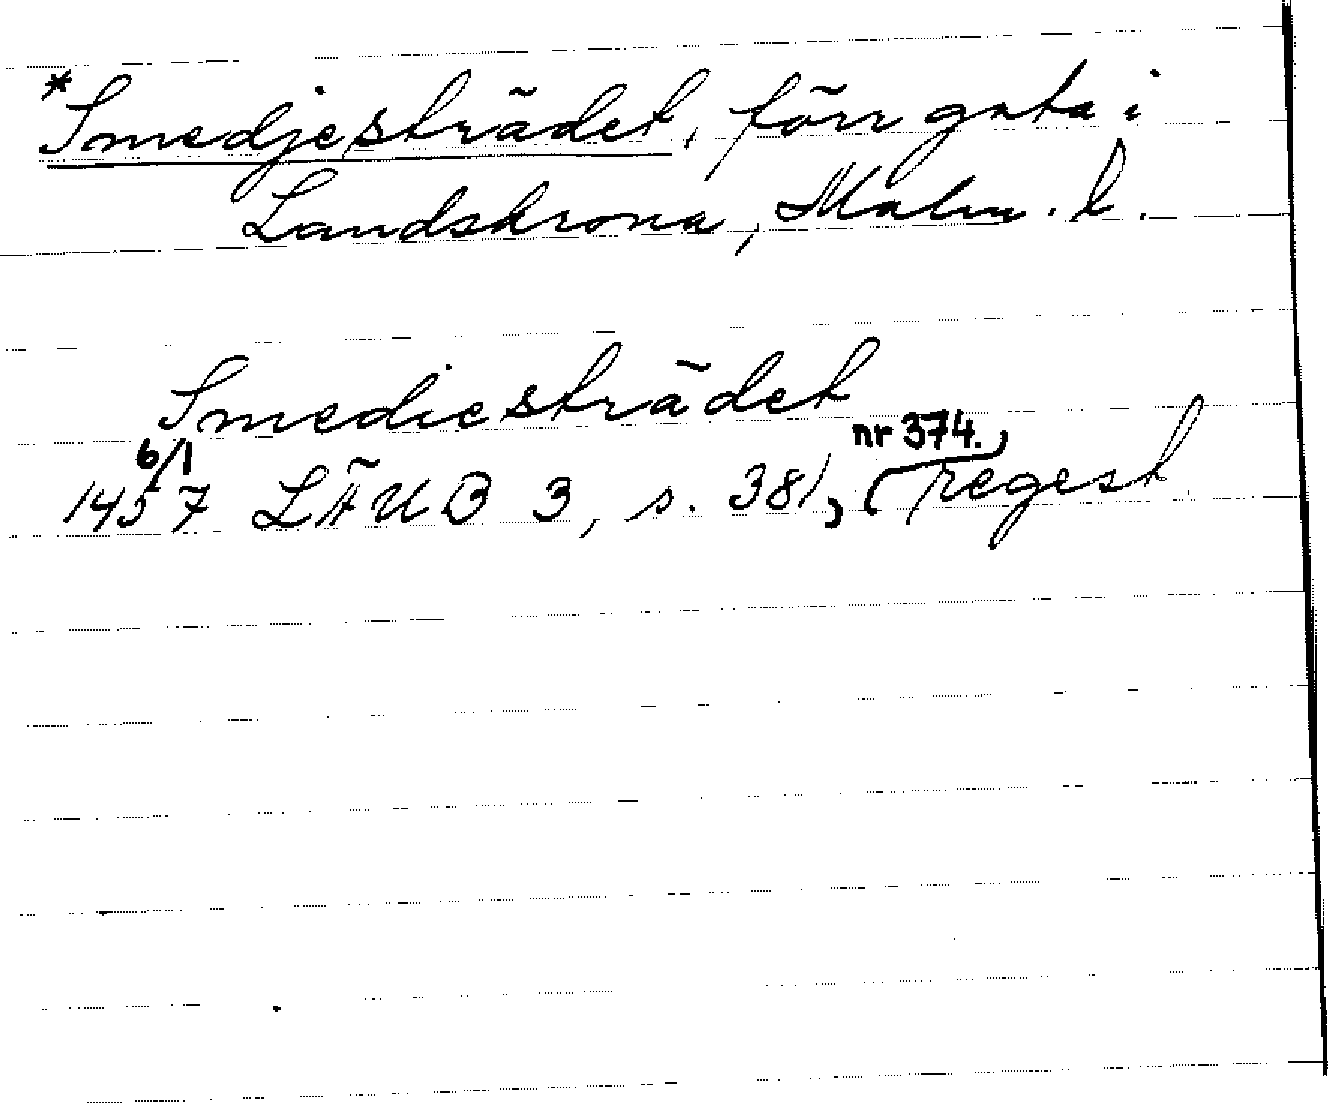 *Smedjesträdet, förr gata i
Landskrona, Malm. l.
Smediesträdet
6/1 nr 374.
1457 LÄUB 3, s. 381, (regest